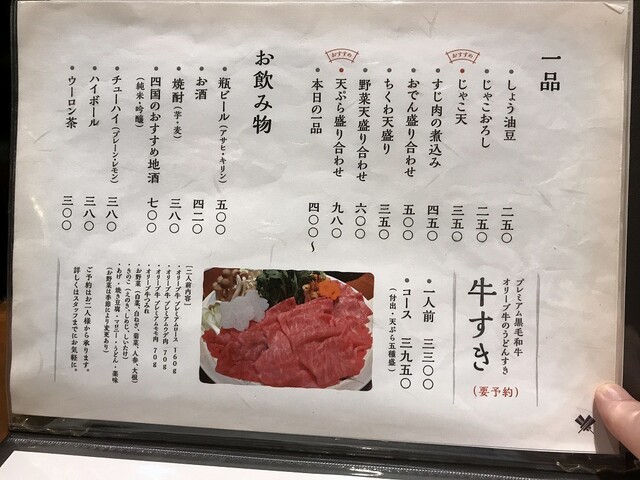 一品
・しょう油豆 二五〇
・じゃこおろし 二五〇
おすすめ
・じゃこ天 三五〇
・すじ肉の煮込み 四五〇
・おでん盛り合わせ 五〇〇
・ちくわ天盛り 三五〇
・野菜天盛り合わせ 六〇〇
おすすめ
・天ぷら盛り合わせ 九八〇
・本日の一品 四〇〇〜
お飲み物
・瓶ビール(アサヒ・キリン) 五〇〇
・お酒 四二〇
・焼酎(芋・麦) 三八〇
・四国のおすすめ地酒 七〇〇
(純米・吟醸)
・チューハイ(プレーン・レモン) 三八〇
・ハイボール 三八〇
・ウーロン茶 三〇〇
プレミアム黒毛和牛
オリーブ牛のうどんすき
牛すき
(要予約)
・一人前 三三〇〇
・コース 三九五〇
(付出・天ぷら五種盛)
【二人前内容】
・オリーブ牛 プレミアムロース 160g
・オリーブ牛 プレミアムウデ肉 70g
・オリーブ牛 プレミアムモモ肉 70g
・オリーブ牛つみれ
・お野菜(白菜、白ねぎ、菊菜、人参、大根)
・きのこ(えのき、しめじ、しいたけ)
・あげ・焼き豆腐・マロニー・うどん・薬味
(お野菜は季節により変更あり)
ご予約はお二人様から承ります。
詳しくはスタッフまでにお気軽に。